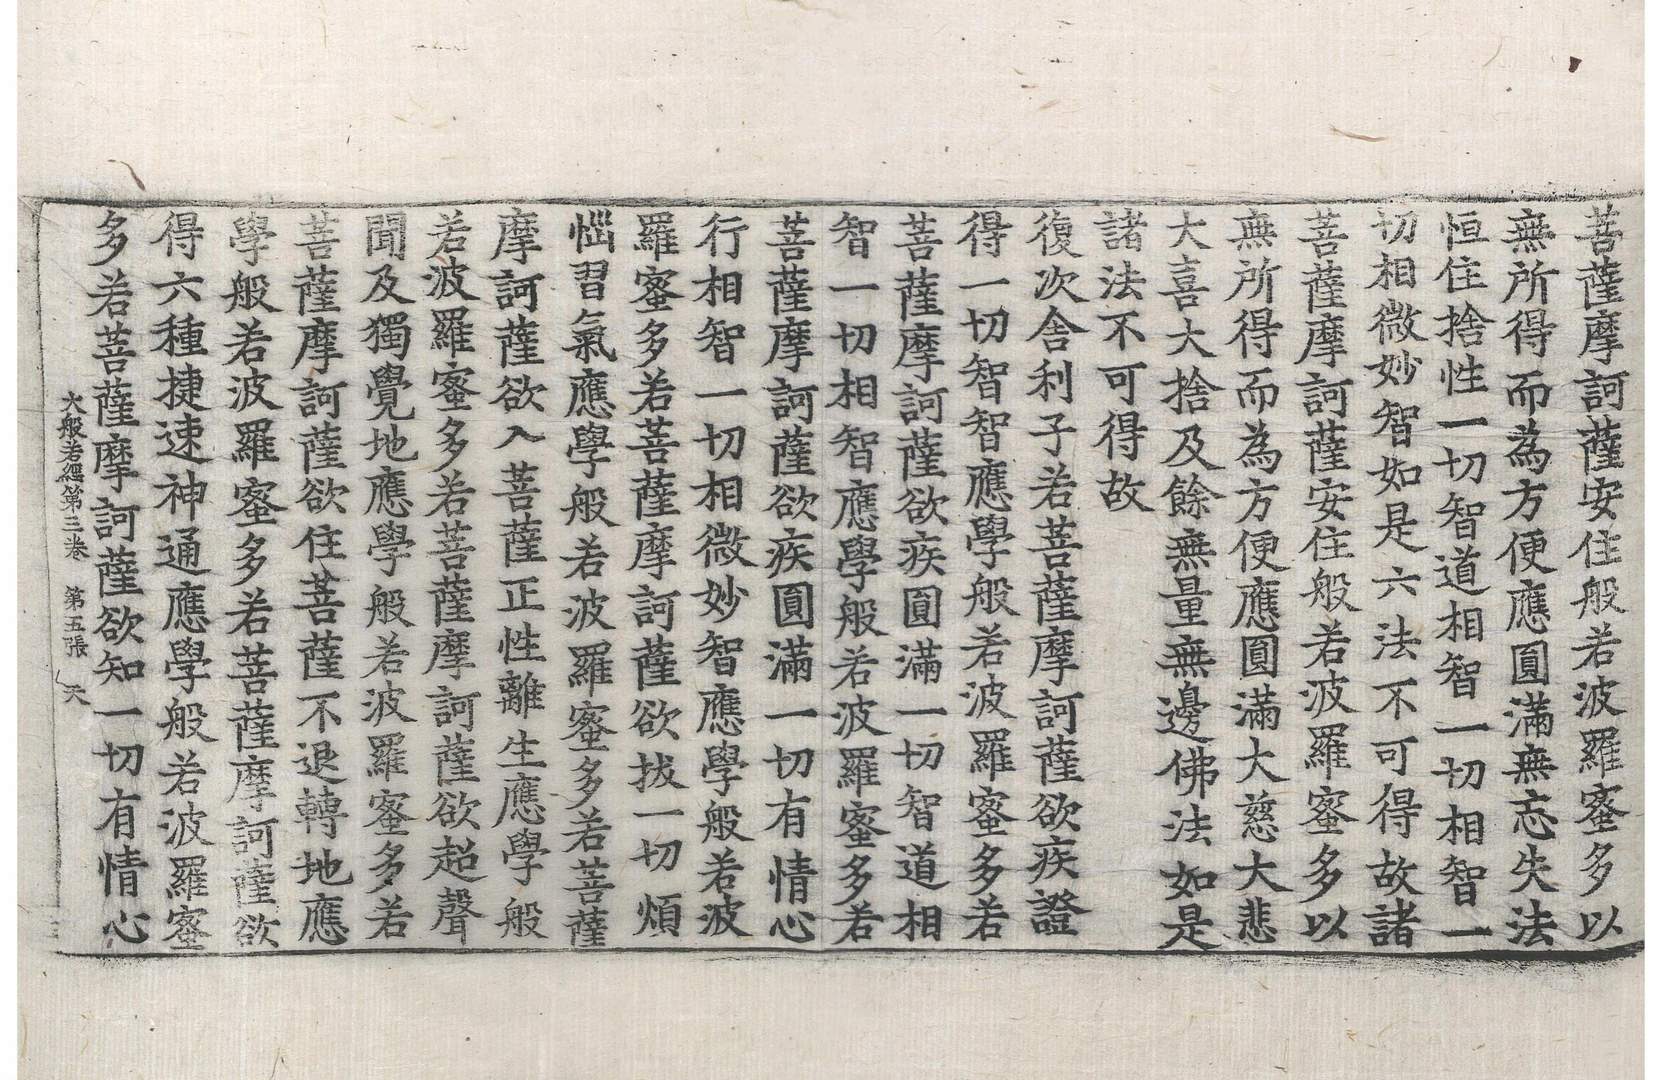 菩薩摩訶薩安住般若波羅蜜多以
無所得而為方便應圓滿無忘失法
恒住捨性一切智道相智一切相智一
切相微妙智如是六法不可得故諸
菩薩摩訶薩安住般若波羅蜜多以
無所得而為方便應圓滿大慈大悲
大喜大捨及餘無量無邊佛法如是
諸法不可得故
復次舍利子若菩薩摩訶薩欲疾證
得一切智智應學般若波羅蜜多若
菩薩摩訶薩欲疾圓滿一切智道相
智一切相智應學般若波羅蜜多若
菩薩摩訶薩欲疾圓滿一切有情心
行相智一切相微妙智應學般若波
羅蜜多若菩薩摩訶薩欲拔一切煩
惱習氣應學般若波羅蜜多若菩薩
摩訶薩欲入菩薩正性離生應學般
若波羅蜜多若菩薩摩訶薩欲超聲
聞及獨覺地應學般若波羅蜜多若
菩薩摩訶薩欲住菩薩不退轉地應
學般若波羅蜜多若菩薩摩訶薩欲
得六種捷速神通應學般若波羅蜜
多若菩薩摩訶薩欲知一切有情心
大般若經第三卷 第五張 天